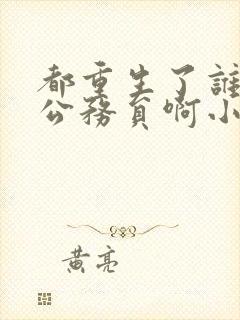 都重生了誰
公務員啊小
黃亮